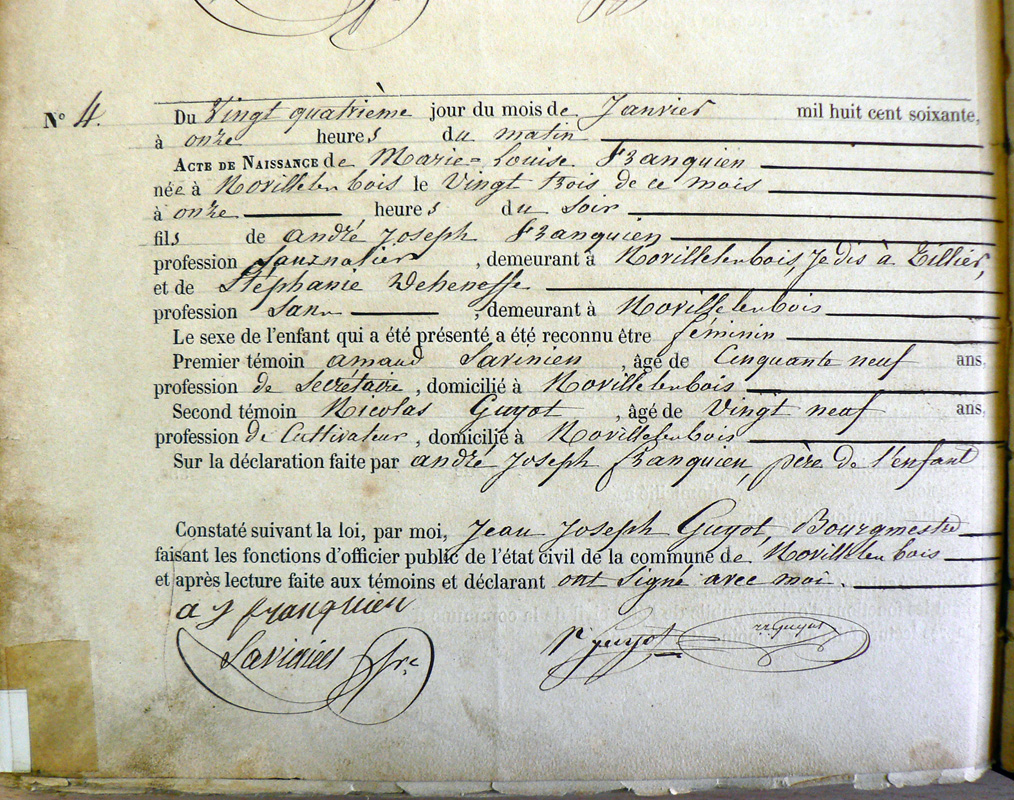 N° 4. Du Vingt quatrième jour du mois de Janvier mil huit cent soixante,
à onze heures du matin
ACTE DE NAISSANCE de Marie=Louise Franquien
née à Novillelenbois le Vingt trois de ce mois
à onze heures du soir
fils de andré Joseph Franquien
profession Journalier, demeurant à Novillelenbois, Jedis à Tillier,
et de Stéphanie Deheneffe
profession San, demeurant à Novillelenbois
Le sexe de l'enfant qui a été présenté a été reconnu être féminin
Premier témoin amand Savinien, âgé de Cinquante neuf ans,
profession de Secrétaire, domicilié à Novillelenbois
Second témoin Nicolas Guyot, âgé de Vingt neuf ans,
profession de Cultivateur, domicilié à Novillelenbois
Sur la déclaration faite par andré Joseph Franquien, père de l'enfant
Constaté suivant la loi, par moi, Jean Joseph Guyot Bourgmestre
faisant les fonctions d'officier public de l'état civil de la commune de Novillelenbois
et après lecture faite aux témoins et déclarant ont signé avec moi.
a J franquien
Savinien
guyot Guyot